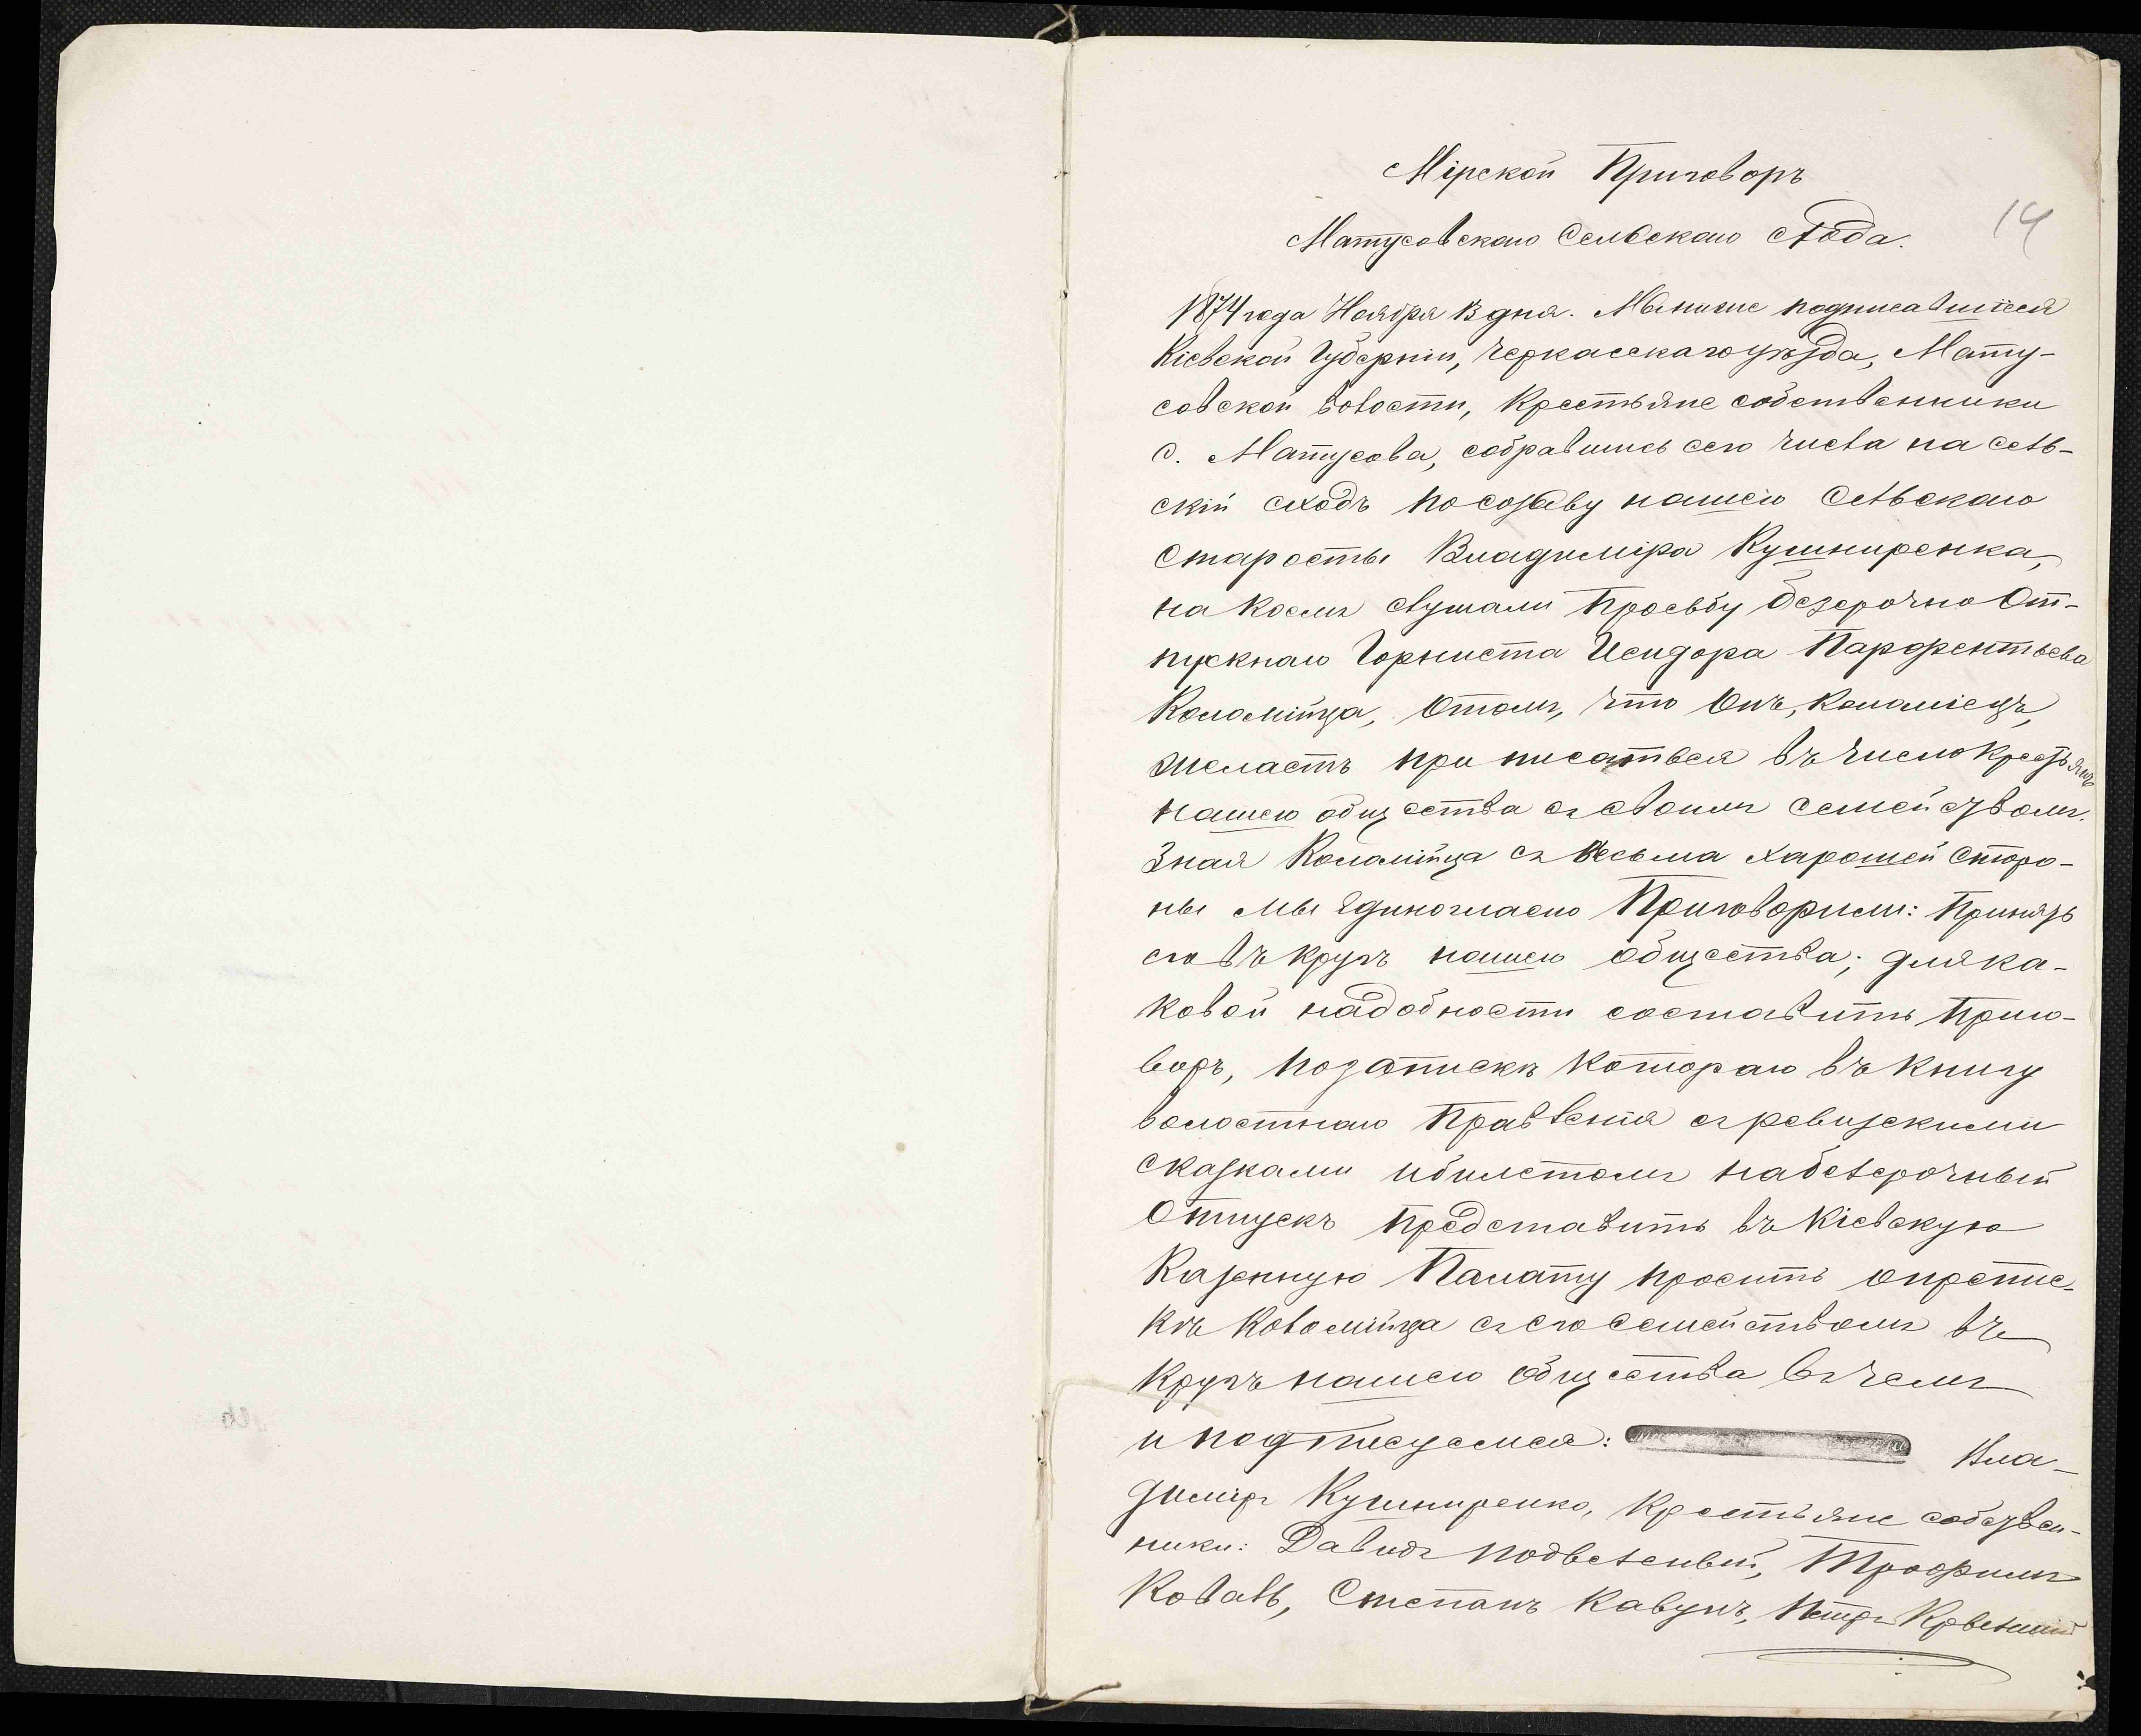 Мірской Приговоръ
Матусовскаго Сельскаго Схода.
14
1874 года Ноября 13 дня. Мы ниже подписавшіеся
Кіевской Губерніи, Черкасскаго уѣзда, Мату-
совской волости, Крестьяне собственники
с. Матусова, собравшись сего числа на сель-
скій сходъ по созыву нашего Сельскаго
Старосты Владиміра Кушниренка,
на коемъ слушали Просьбу безсрочно От-
пускнаго Горниста Исидора Парфентьева
Коломійца, О томъ, что Онъ, Коломіецъ,
желаетъ приписаться въ число Крестьянъ
нашего общества съ своимъ семействомъ.
Зная Коломійца съ весьма харошей Сторо-
ны мы единогласно Приговорили: Принять
его въ кругъ нашего общества; для ка-
ковой надобности составить Приго-
воръ, по запискѣ котораго въ книгу
волостнаго Правленія съ ревизскими
сказками и билетомъ на безсрочный
Отпускъ Представить въ Кіевскую
Казенную Палату просить о припис-
кѣ Коломійца съ его семействомъ въ
Кругъ нашего Общества въ чемъ
и подписуемся: Вла-
диміръ Кушниренко, Крестьяне собствен-
ники: Давидъ Подвезеный, Трофимъ
Коваль, Степанъ Кавунъ, Петръ